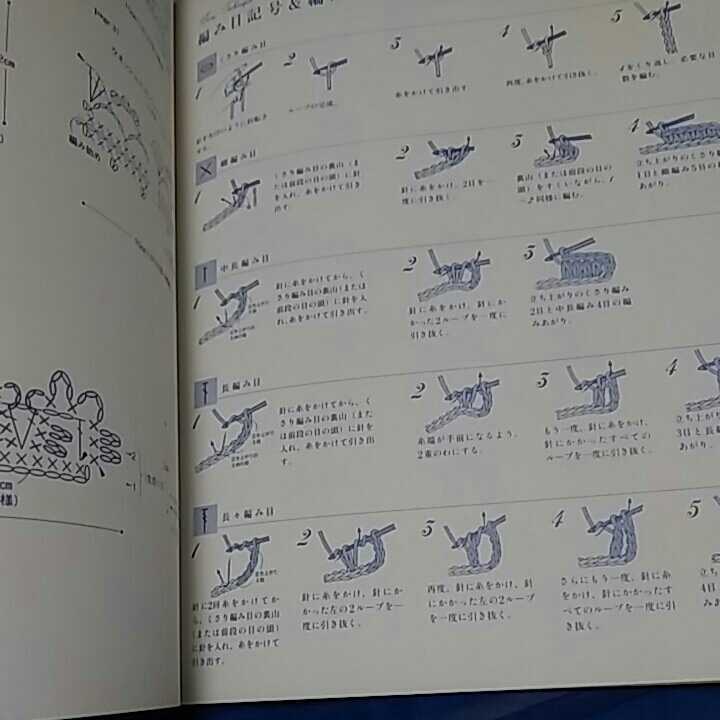 編み目記号&編
くさり編み目
1
2
ループの完成。
3
糸をかけて引き出す
4
再度、糸をかけて引き抜く。
5
4をくり返し、必要な目
数を編む。
細編み目
1
くさり編み目の裏山(ま
たは前段の目の頭)に針
を入れ、糸をかけて引き
出す。
2
針に糸をかけ、2目を一
度に引き抜く。
3
裏山(または前段の目の
頭)をすくいながら、1
~2同様に編む。
4
立ち上がりのくさり編
1目と細編み5目の
あがり。
中長編み目
1
針に糸をかけてから、く
さり編み目の裏山(また
は前段の目の頭)に針を入
れ、糸をかけて引き出す。
2
針に糸をかけ、針にか
かった2ループを一度に
引き抜く。
3
立ち上がりのくさり編み
2目と中長編み4目の編
みあがり。
長編み目
1
針に糸をかけてから、く
さり編み目の裏山(また
は前段の目の頭)に針を
入れ、糸をかけて引き出
す。
2
糸端が手前になるよう、
2重のわにする。
3
もう一度、針に糸をかけ、
針にかかったすべての
ループを一度に引き抜く。
4
立ち上が
3目と長編
あがり。
長々編み目
1
針に2回糸をかけてか
ら、くさり編み目の裏山
(または前段の目の頭)
に針を入れ、糸をかけて
引き出す。
2
針に糸をかけ、針にか
かった左の2ループを一
度に引き抜く。
3
再度、針に糸をかけ、針
にかかった左の2ループ
を一度に引き抜く。
4
さらにもう一度、針に糸
をかけ、針にかかったす
べてのループを一度に引
き抜く。
5
立ち
4目
みあが
編み始め
cm
様)